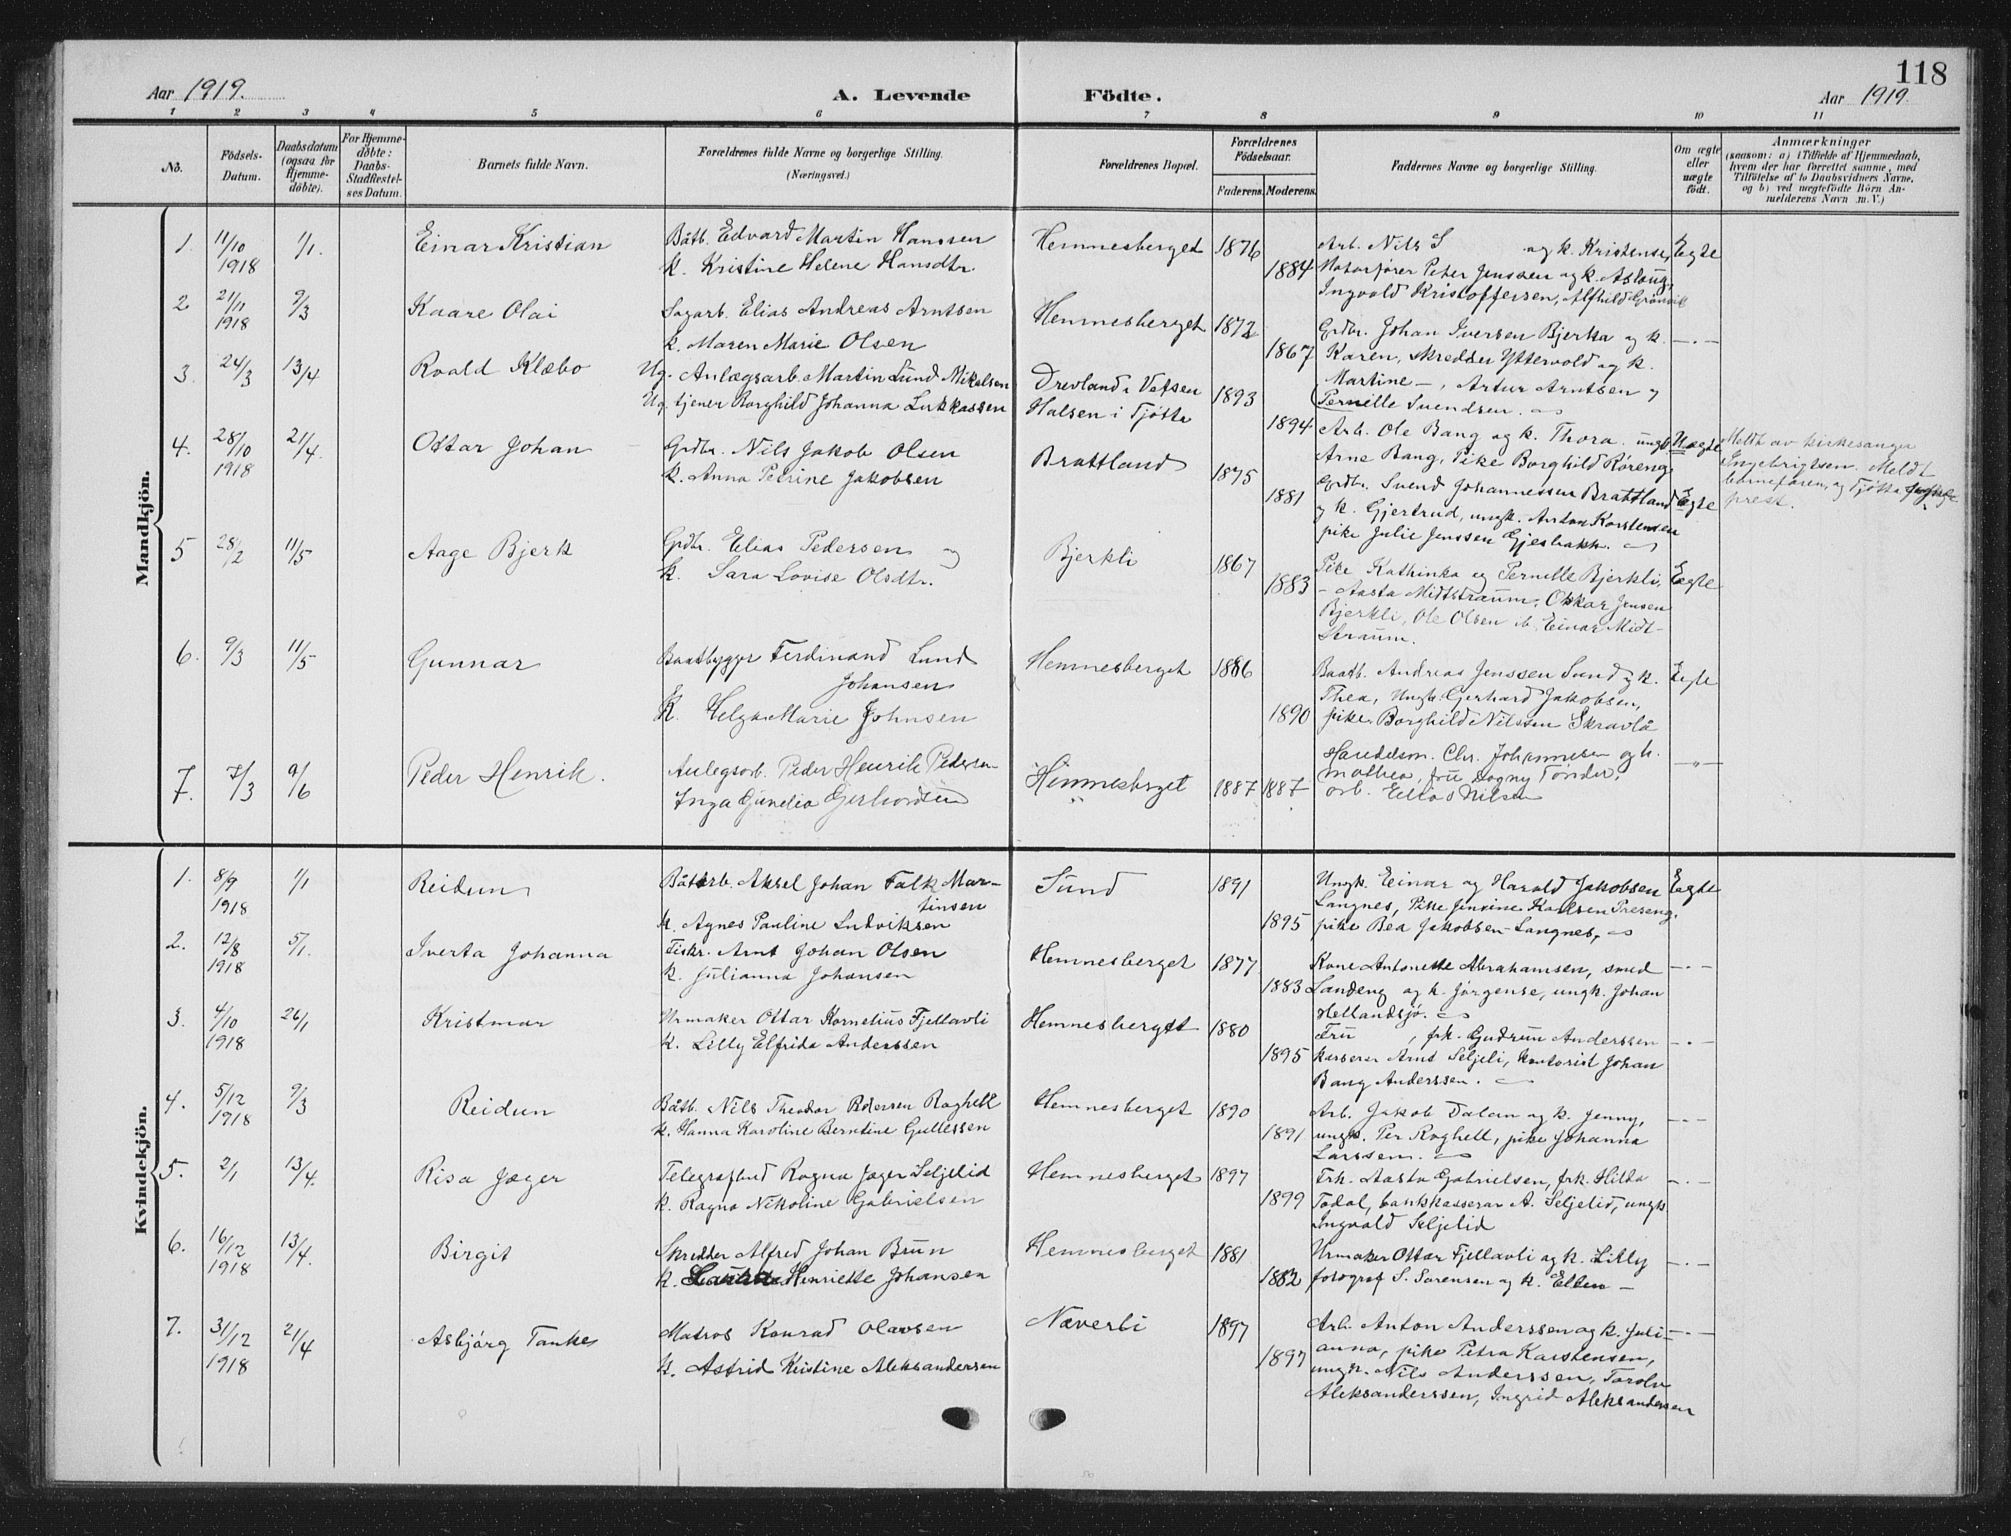 118
Aar 1919. A. Levende Födte. Aar 1919.
1 2 3 4 5 6 7 8 9 10 11
No. Födsels-Datum. Daabsdatum (ogsaa for Hjemmedöbte). For Hjemmedöbte: Daabs-Stadfæstelses Datum. Barnets fulde Navn. Forældrenes fulde Navne og borgerlige Stilling. (Næringsvei.) Forældrenes Bopæl. Forældrenes Födselsaar. Faderens. Moderens. Faddernes Navne og borgerlige Stilling. Om ægte eller uægte födt. Anmærkninger
(saasom: a) i Tilfælde af Hjemmedaab,
hvem der har forrettet samme, med
Tilföielse af to Daabsvidners Navne,
og b) ved uægtefödte Börn An-
melderens Navn m. V.)
Mandkjön.
1. 11/10 1918 1/1. Einar Kristian
Båtb. Edvard Martin Hanssen
k. Kristine Helene Hansdtr.
Hemnesberget 1876 1884
Arb. Nils S og k. Kristense,
Motorfører Peter Jenssen og k. Aslaug,
Ingvald Kristoffersen, Alfhild Grønvik
Egte
2 21/11 1918 9/3 Kaare Olai
Sagarb. Elias Andreas Arntsen
k. Maren Marie Olsen
Hemnesberget 1872 1867
Grdbr. Johan Iversen Bjerka og k.
Karen, skredder Yttervold og k.
Martine –, Artur Arntsen og
Pernille Svendsen.
— . —
3. 24/3 13/4 Roald Klæbo
Ug. Anlægsarb. Martin Lund Mikalsen
Ug. tjener Borghild Johanna Lukkassen
Drevland i Vefsen
Halsen i Tjøtta
1893 1894
Arb. Ole Bang og k. Thora. ungk.
Arne Bang, Pike Borghild Røreng
Uægte
Meldt av kirkesanger
Ingebrigtsen. Meldt
prest.
4. 28/10 1918 21/4. Ottar Johan
Grdbr. Nils Jakob Olsen
k. Anna Petrine Jakobsen
Brattland 1875 1881
Grdbr. Svend Johannessen Brattland
og k. Gjertrud, ungk. Anton Karstensen
pike Julie Jenssen Gjesbakk.
Egte
5 28/2 11/5 Aage Bjerk
Grdbr. Elias Pedersen og
k. Sara Lovise Olsdtr.
Bjerkli 1867 1883
Pike Kathinka og Pernille Bjerkli,
– Aasta Midtstraum, Oskar Jensen
Bjerkli, Ole Olsen Einar Midt-
straum.
Egte
6. 9/3 11/5 Gunnar
Baatbygger Ferdinand Lund
Johansen
k. Helga Marie Johnsen
Hemnesberget 1886 1890
Baatb. Andreas Jenssen Sund og k.
Thea, Ungk. Gerhard Jakobsen,
pike Borghild Nilssen Skravlå
Egte
7. 7/3 9/6 Peder Henrik.
Anlegsarb. Peder Henrik Pedersen
Inga Gunelia Gerhardsen
Hemnesberget 1887 1887
Handelsm. Chr. Johannesen og k.
Mathea, frü Dagny Tønder,
arb. Elias Nilsen
— „ —
Kvindekjön.
1. 8/9 1918 1/1 Reidun
Båtarb. Aksel Johan Falk Mar-
tinsen
k. Agnes Pauline Ludviksen
Sund 1891 1895
Ungk. Einar og Harald Jakobsen
Langnes, Pike Jensine Karlsen Preseng,
pike Bea Jakobsen Langnes,
Eegte
2. 12/8 1918 5/1. Iverta Johanna
Fiskr. Arnt Johan Olsen
k. Julianna Johansen
Hemnesberget 1877 1883
Kone Antonette Abrahamsen, smed
Landeng og k. Jørgense, ungk. Johan
Hellandsjø.
— . —
3. 4/10 1918 26/1 Kristmar
Urmaker Ottar Kornelius Fjellavli
k. Lilly Elfrida Anderssen
Hemnesberget 1880 1895
Frü , frk. Gudrun Anderssen
kasserer Arnt Seljeli, kontorist Johan
Bang Anderssen.
— . —
4. 5/12 1918 9/3 Reidun
Båtb. Nils Theodor Pedersen Røghell
k. Hanna Karoline Berntine Gullessen
Hemnesberget 1890 1891
Arb. Jakob Dalan og k. Jenny,
ungk. Per Røghell, pike Johanna
Larssen.
— . —
5. 2/1 13/4. Risa Jæger
Telegrafbud Ragna Jæger Seljelid
k. Ragna Nikoline Gabrielsen
Hemnesberget 1897 1899
Frk. Aasta Gabrielsen, frk. Hilda
Todal, bankkasserar A. Seljelid, ungk.
Ingvald Seljelid
— . —
6. 16/12 1918 13/4. Birgit
Skredder Alfred Johan Brun
k. Henriette Johansen
Hemnesberget 1881 1882
Urmaker Ottar Fjellavli og k. Lilly
fotograf S. Sørensen og k. Ellen –
— . —
7. 31/12 1918 21/4 Asbjørg Tanke
Matros Konrad Olavsen
k. Astrid Kristine Aleksandersen
Næverli 1897 1897
Arb. Anton Anderssen og k. Juli-
anna, pike Petra Karstensen,
ungk. Nils Anderssen, Torolv
Aleksanderssen, Ingrid Aleksandersen
— . —